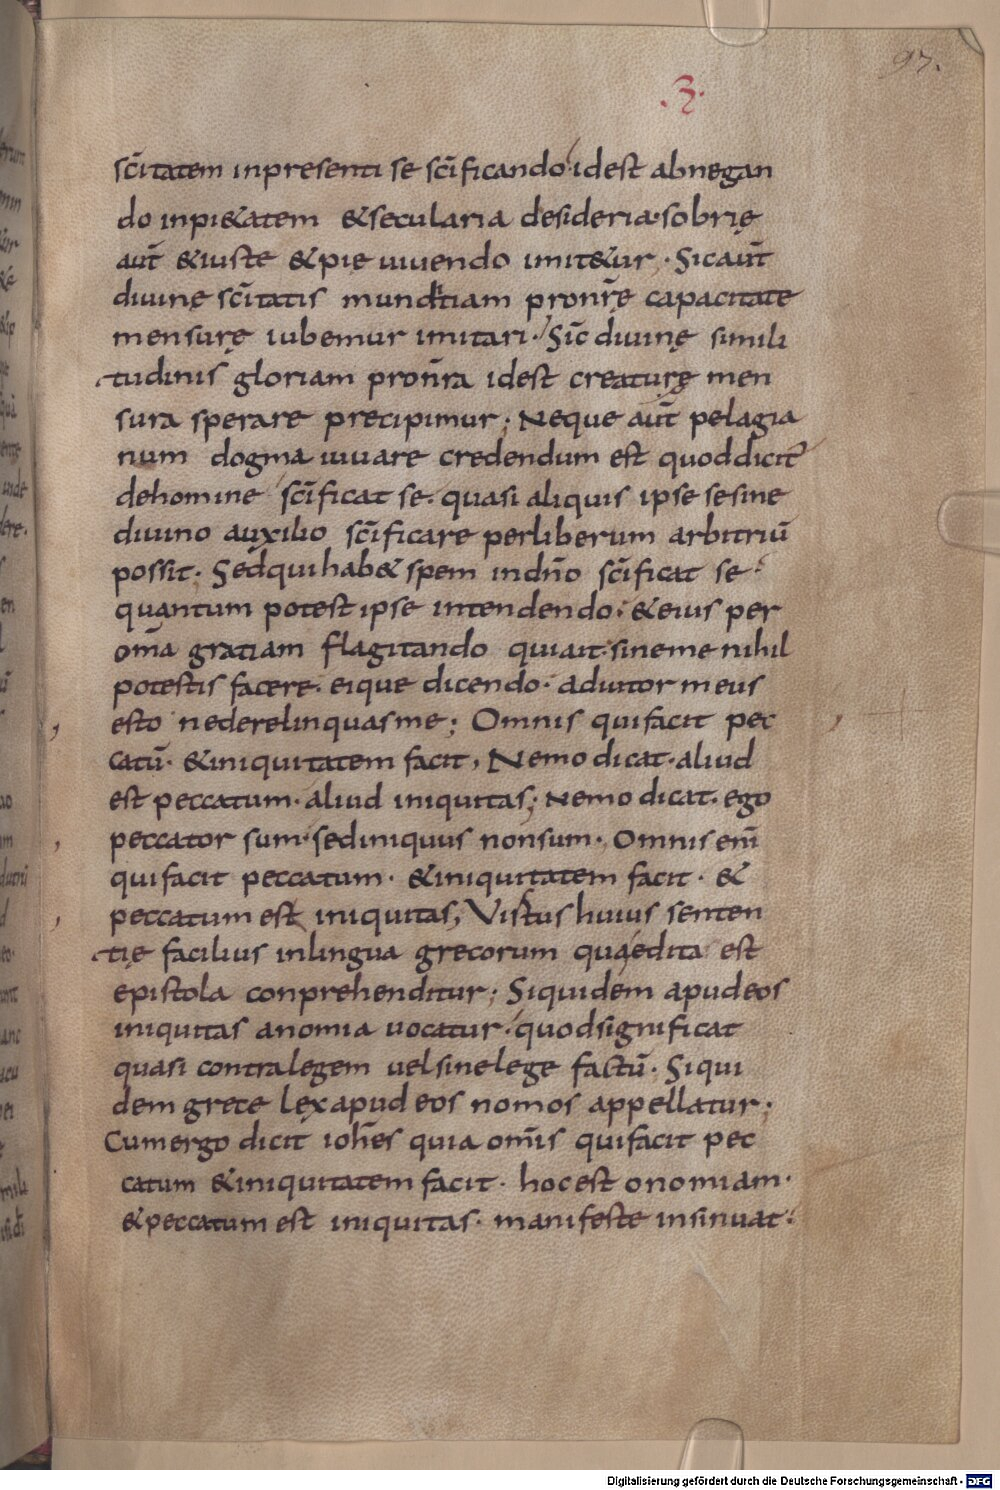 97.
.3.
sc̄itatem inpresenti se sc̄ificando· idest abnegan
do inpi&atem &secularia desideria· sobrię
aut̄ &iuste &pie uiuendo imit&ur · Sicaut̄
diuinę sc̄itatis munditiam pronr̄ę capacitate
mensurę iubemur imitari· Sic̄ diuinę simili
tudinis gloriam pronr̄a idest creaturę men
sura sperare precipimur; Neque aut̄ pelagia
num dogma iuuare credendum est quoddicit̄
dehomine sc̄ificat se· quasi aliquis ipse sesine
diuino auxilio sc̄ificare perliberum arbitriū
possit· Sedquihab& spem indn̄o sc̄ificat se·
quantum potest ipse intendendo· &eius per
om̄a gratiam flagitando quiait· sineme nihil
potestis facere· eique dicendo· adiutor meus
esto nederelinquasme; Omnis quifacit pec
catū· &iniquitatem facit, Nemo dicat· aliud
est peccatum· aliud iniquitas; Nemo dicat· ego
peccator sum· sediniquus nonsum· Omnis enī
quifacit peccatum· &iniquitatem facit · &
peccatum est iniquitas, Vistus huius senten
tię facilius inlingua grecorum quaedita est
epistola conprehenditur; Siquidem apudeos
iniquitas anomia uocatur· quodsignificat
quasi contralegem uelsinelege factū· Siqui
dem grece lex apud eos nomos appellatur;
Cumergo dicit ioh̄es quia om̄is quifacit pec
catum &iniquitatem facit · hocest onomiam·
&peccatum est iniquitas· manifeste insinuat·
Digitalisierung gefördert durch die Deutsche Forschungsgemeinschaft - DFG